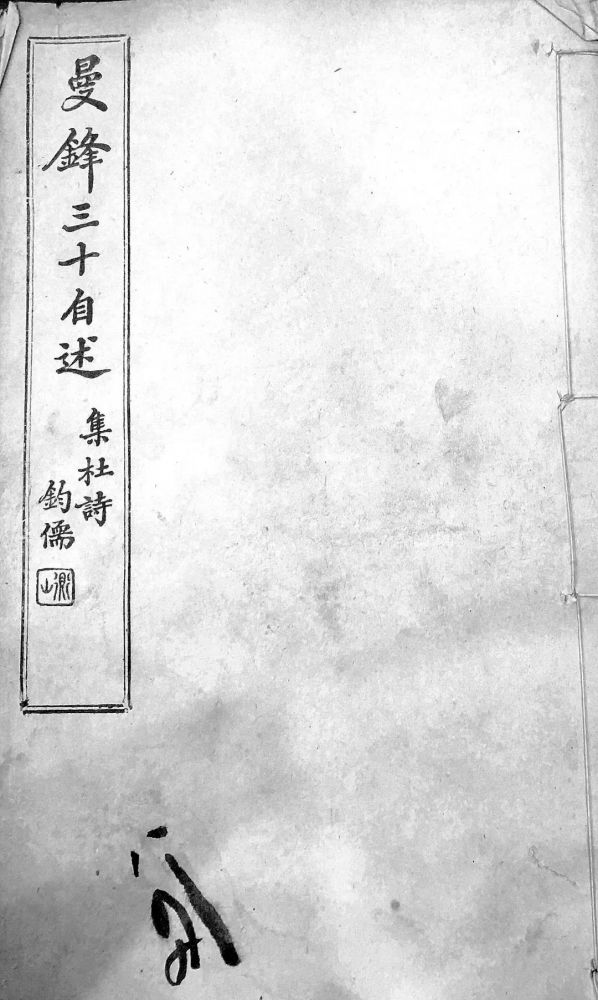 曼鋒三十自述
集杜詩
鈞儒